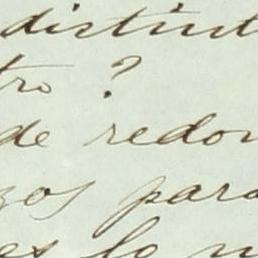 distint
tro ?
de redon
zos para
es lo